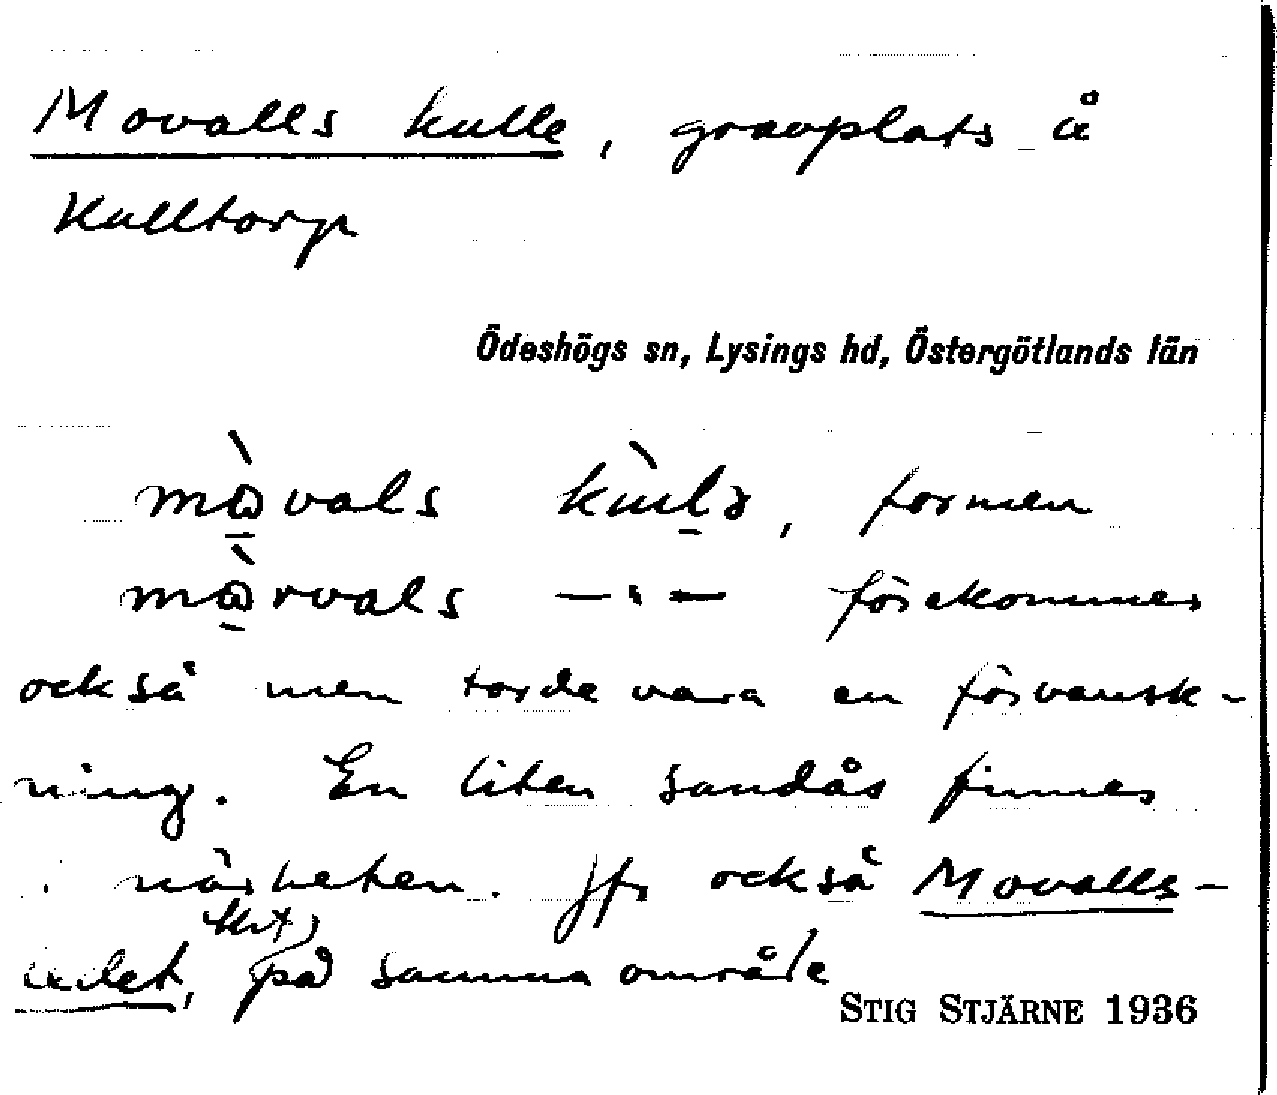 Movalls kulle, gravplats å
Kulltorp
Ödeshögs sn, Lysings hd, Östergötlands län
mòvals kùlə, formen
mòrvals –"– förekommer
också men torde vara en förvansk-
ning. En liten sandås finnes
i närheten. Jfr också Movalls-
på samma område
STIG STJÄRNE 1936